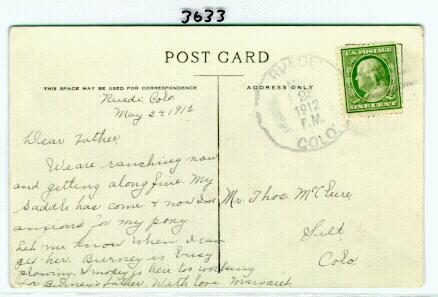 3633
POST CARD
THIS SPACE MAY BE USED FOR CORRESPONDENCE
ADDRESS ONLY
U.S. POSTAGE
ONE CENT
RUEDI
2
1912
P.M.
COLO.
Ruedi, Colo.
May 24 1912
Dear Father,
We are ranching now
and getting along fine. My
saddle has come & now I am
anxious for my pony
Let me know when I can
get her. Burney is busy
plowing. Smokey is here too working
for Burney's Father. With love Margaret
Mr. Thos. McClure,
Silt,
Colo.